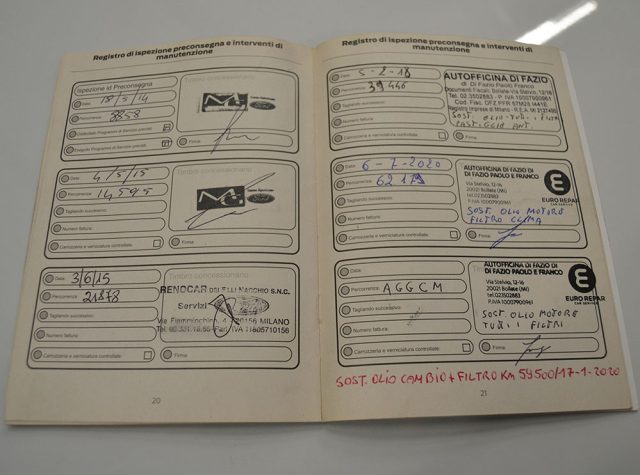 Registro di ispezione preconsegna e interventi di
manutenzione
Ispezione id Preconsegna
Timbro concessionario
Data:
18/5/14
Percorrenza:
Firma:
Data:
4/5/15
Timbro concessionario
Percorrenza:
14595
Tagliando successivo:
Numero fattura:
Carrozzeria e verniciatura controllate:
Firma:
Data:
3/6/15
Timbro concessionario
Percorrenza:
21878
RENOCAR
S.N.C.
Servizi
Tagliando successivo:
20156 MILANO
Numero fattura:
IVA 11805710156
Carrozzeria e verniciatura controllate:
Firma:
20
Registro di ispezione preconsegna e interventi di
manutenzione
Data:
5-2-18
Percorrenza:
39446
Tagliando successivo:
Numero fattura:
Carrozzeria e verniciatura controllate:
AUTOFFICINA DI FAZIO
Di Fazio Paolo Franco
Tel. 02.3502883 - P. IVA 10007900961
SOST. OLIO TUTTI I FILTRI
Firma:
Data:
6-7-2020
Percorrenza:
62179
Tagliando successivo:
Numero fattura:
Carrozzeria e verniciatura controllate:
AUTOFFICINA DI FAZIO DI
DI FAZIO PAOLO E FRANCO
Via Stelvio, 12-16
20021 Bollate (MI)
tel.023502883
P.IVA 10007900961
EURO REPAR
CAR SERVICE
SOST. OLIO MOTORE
FILTRO CLIMA
Firma:
Data:
Percorrenza:
AGGCM
Tagliando successivo:
Numero fattura:
Carrozzeria e verniciatura controllate:
AUTOFFICINA DI FAZIO DI
DI FAZIO PAOLO E FRANCO
Via Stelvio, 12-16
20021 Bollate (MI)
tel.023502883
P.IVA 10007900961
EURO REPAR
CAR SERVICE
SOST. OLIO MOTORE
TUTTI I FILTRI
Firma:
SOST. OLIO CAMBIO + FILTRO KM 59500/17-1-2020
21